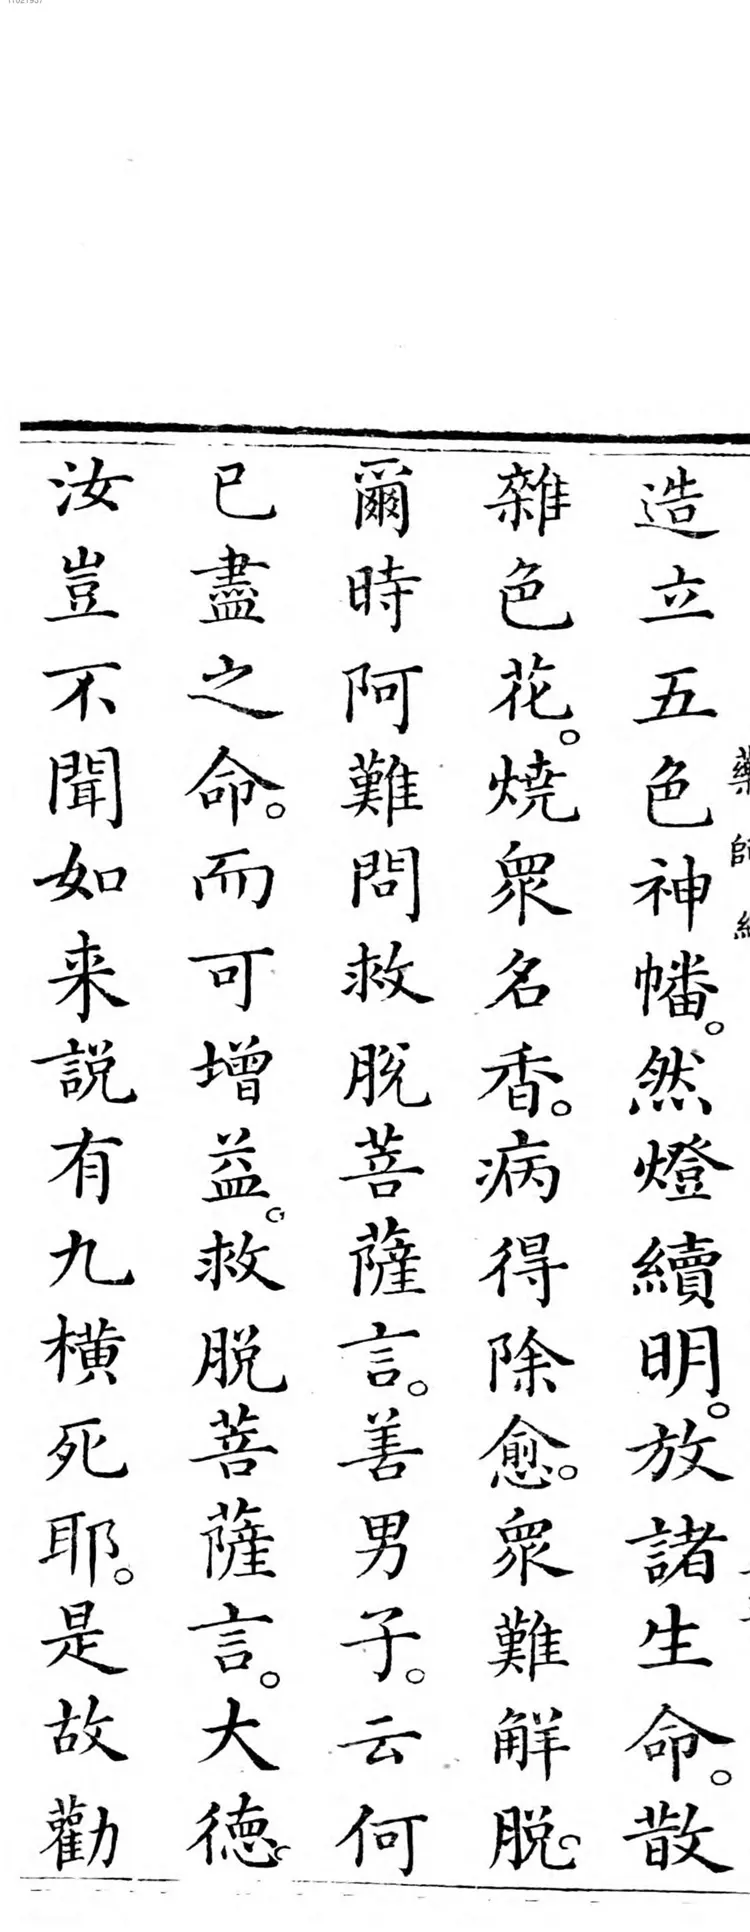 造立五色神幡。然燈續明。放諸生命。散
雜色花。燒衆名香。病得除愈。衆難解脫。
爾時阿難問救脫菩薩言。善男子。云何
已盡之命。而可增益。救脫菩薩言。大德。
汝豈不聞如来說有九橫死耶。是故勸